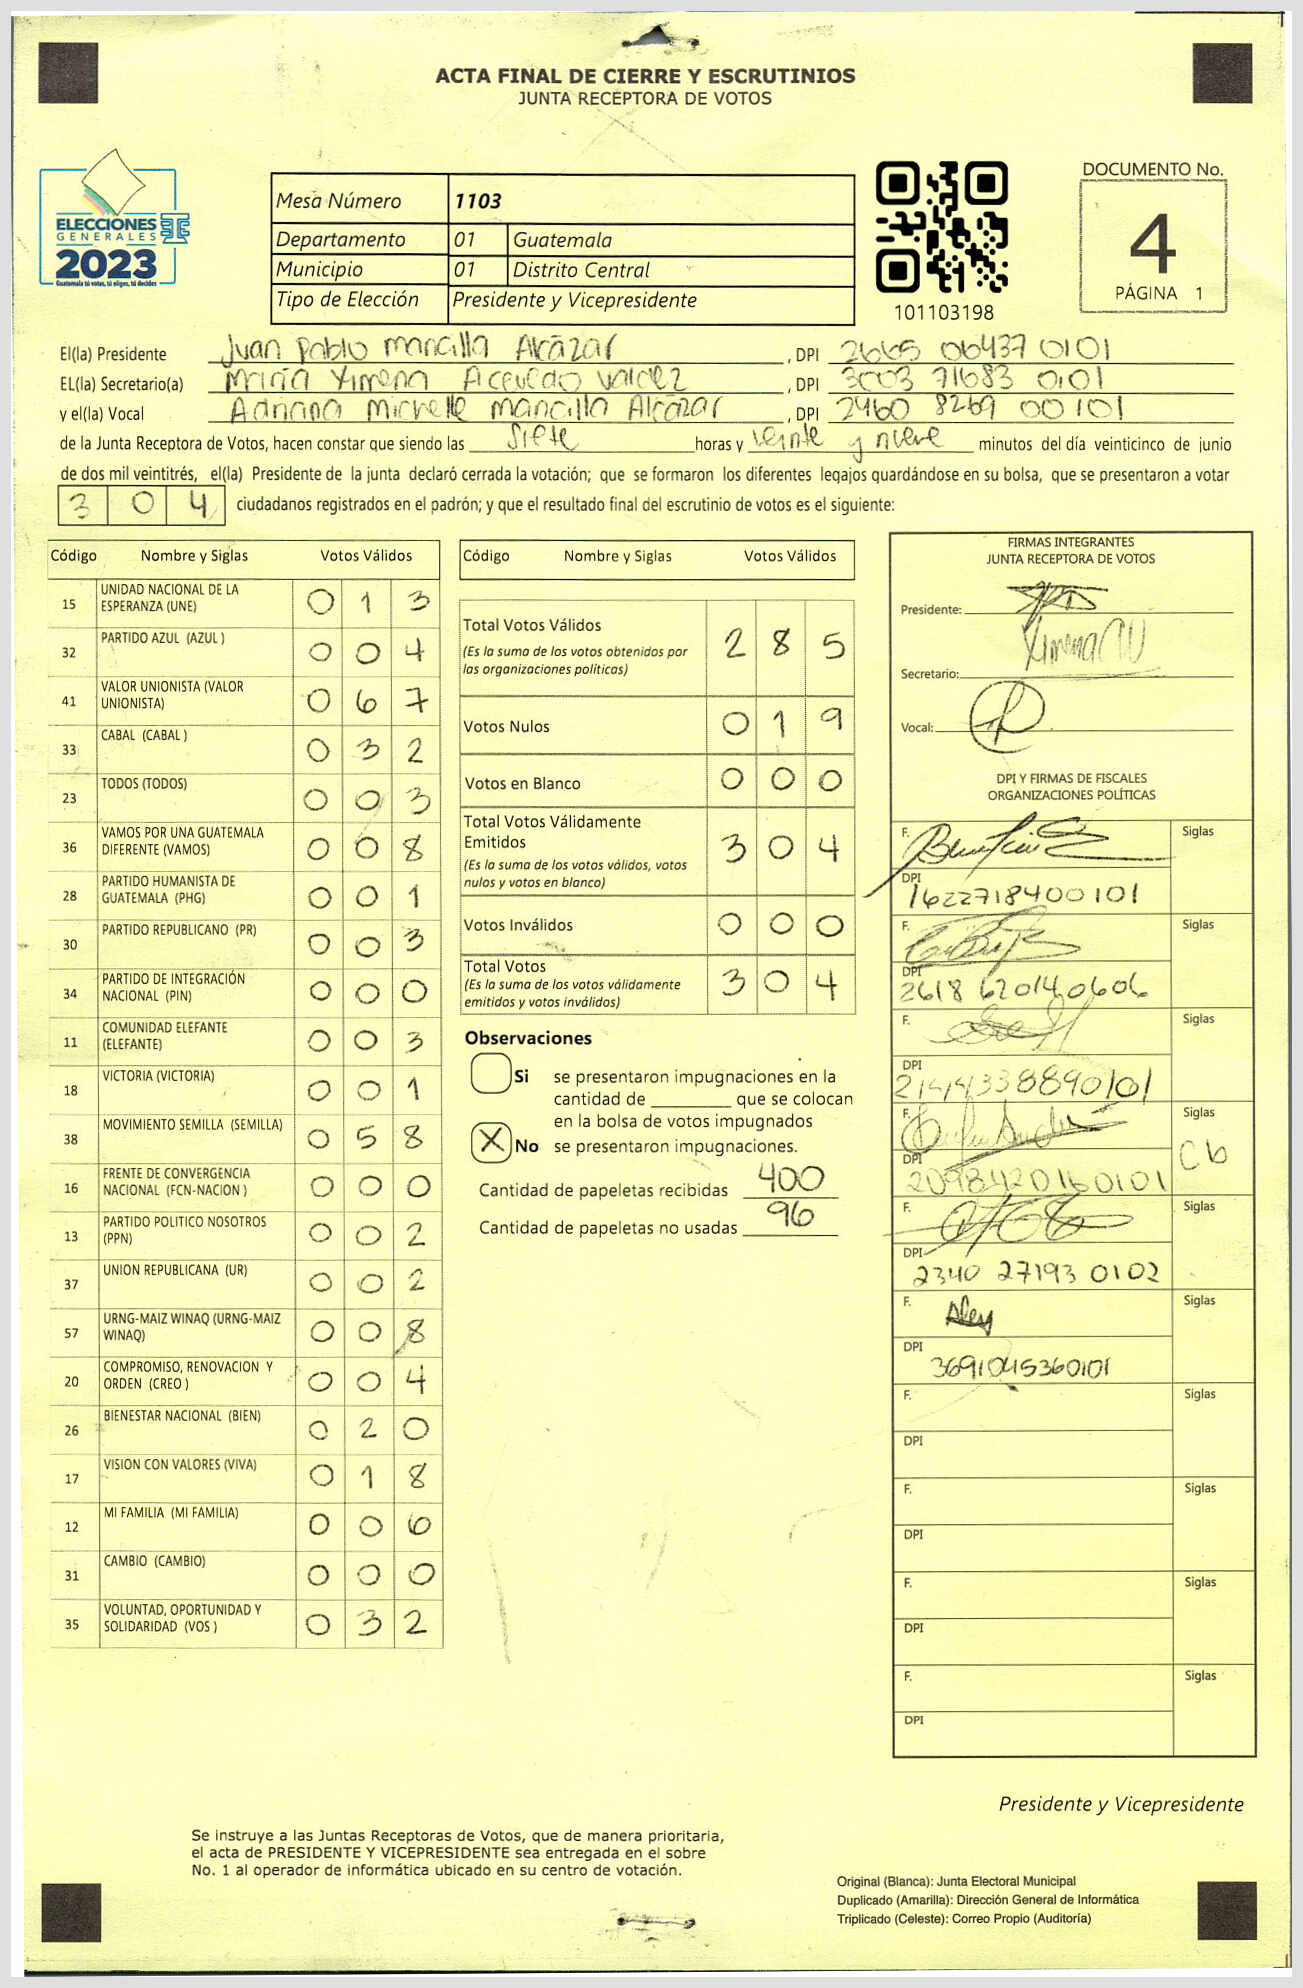 ACTA FINAL DE CIERRE Y ESCRUTINIOS
JUNTA RECEPTORA DE VOTOS
ELECCIONES
GENERALES
2023
Guatemala tú votas, tú eliges, tú decides
Mesa Número 1103
Departamento 01 Guatemala
Municipio 01 Distrito Central
Tipo de Elección Presidente y Vicepresidente
101103198
DOCUMENTO No.
4
PÁGINA 1
El(la) Presidente Juan Pablo Mancilla Alcázar, DPI 2665 06437 0101
EL(la) Secretario(a) María Ximena Acevedo Valdez, DPI 3003 71683 0101
y el(la) Vocal Adriana Michelle Mancilla Alcázar, DPI 2460 8269 00101
de la Junta Receptora de Votos, hacen constar que siendo las siete horas y veinte y nueve minutos del día veinticinco de junio
de dos mil veintitrés, el(la) Presidente de la junta declaró cerrada la votación; que se formaron los diferentes legajos guardándose en su bolsa, que se presentaron a votar
304 ciudadanos registrados en el padrón; y que el resultado final del escrutinio de votos es el siguiente:
Código Nombre y Siglas Votos Válidos
15 UNIDAD NACIONAL DE LA ESPERANZA (UNE) 0 1 3
32 PARTIDO AZUL (AZUL ) 0 0 4
41 VALOR UNIONISTA (VALOR UNIONISTA) 0 6 7
33 CABAL (CABAL ) 0 3 2
23 TODOS (TODOS) 0 0 3
36 VAMOS POR UNA GUATEMALA DIFERENTE (VAMOS) 0 0 8
28 PARTIDO HUMANISTA DE GUATEMALA (PHG) 0 0 1
30 PARTIDO REPUBLICANO (PR) 0 0 3
34 PARTIDO DE INTEGRACIÓN NACIONAL (PIN) 0 0 0
11 COMUNIDAD ELEFANTE (ELEFANTE) 0 0 3
18 VICTORIA (VICTORIA) 0 0 1
38 MOVIMIENTO SEMILLA (SEMILLA) 0 5 8
16 FRENTE DE CONVERGENCIA NACIONAL (FCN-NACION ) 0 0 0
13 PARTIDO POLITICO NOSOTROS (PPN) 0 0 2
37 UNION REPUBLICANA (UR) 0 0 2
57 URNG-MAIZ WINAQ (URNG-MAIZ WINAQ) 0 0 8
20 COMPROMISO, RENOVACION Y ORDEN (CREO ) 0 0 4
26 BIENESTAR NACIONAL (BIEN) 0 2 0
17 VISION CON VALORES (VIVA) 0 1 8
12 MI FAMILIA (MI FAMILIA) 0 0 6
31 CAMBIO (CAMBIO) 0 0 0
35 VOLUNTAD, OPORTUNIDAD Y SOLIDARIDAD (VOS ) 0 3 2
Código Nombre y Siglas Votos Válidos
Total Votos Válidos 2 8 5
(Es la suma de los votos obtenidos por
las organizaciones políticas)
Votos Nulos 0 1 9
Votos en Blanco 0 0 0
Total Votos Válidamente
Emitidos 3 0 4
(Es la suma de los votos válidos, votos
nulos y votos en blanco)
Votos Inválidos 0 0 0
Total Votos 3 0 4
(Es la suma de los votos válidamente
emitidos y votos inválidos)
Observaciones
Si se presentaron impugnaciones en la
cantidad de ________ que se colocan
en la bolsa de votos impugnados
X No se presentaron impugnaciones.
Cantidad de papeletas recibidas 400
Cantidad de papeletas no usadas 96
FIRMAS INTEGRANTES
JUNTA RECEPTORA DE VOTOS
Presidente:
Secretario: Ximena
Vocal:
DPI Y FIRMAS DE FISCALES
ORGANIZACIONES POLÍTICAS
F. Siglas
DPI 1622718400101
F. Siglas
DPI 2618 620140606
F. Siglas
DPI
F. Siglas Cb
DPI 2098420160101
F. Siglas
DPI 2340 27193 0102
F. Aley Siglas
DPI 3691045360101
F. Siglas
DPI
F. Siglas
DPI
F. Siglas
DPI
F. Siglas
DPI
Presidente y Vicepresidente
Se instruye a las Juntas Receptoras de Votos, que de manera prioritaria,
el acta de PRESIDENTE Y VICEPRESIDENTE sea entregada en el sobre
No. 1 al operador de informática ubicado en su centro de votación.
Original (Blanca): Junta Electoral Municipal
Duplicado (Amarilla): Dirección General de Informática
Triplicado (Celeste): Correo Propio (Auditoría)